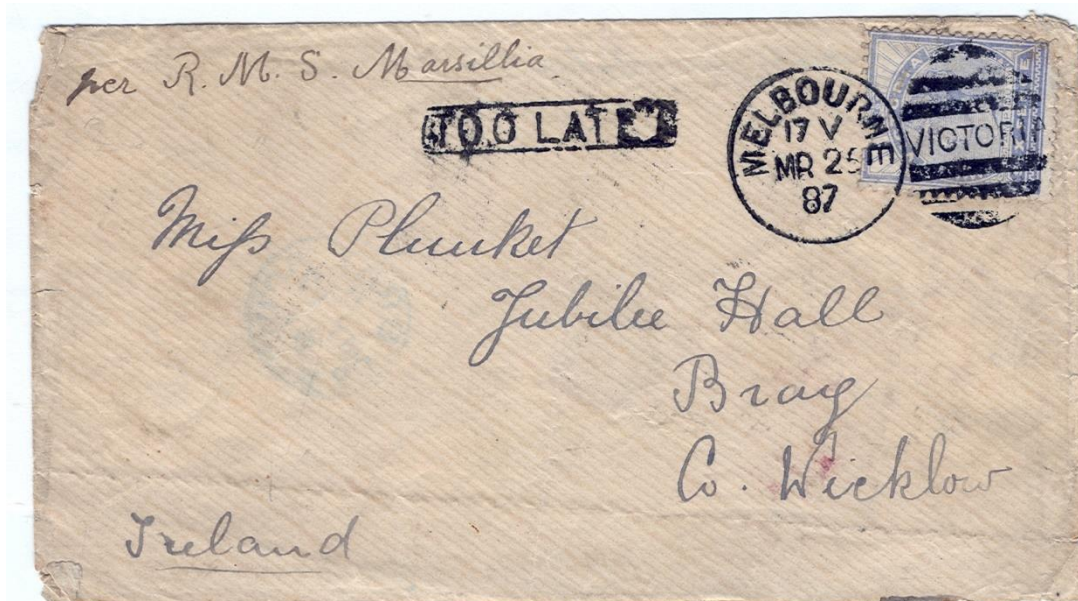 per R. M. S. Marsillia
TOO LATE
MELBOURNE
17 V
MR 25
87
VICTORIA
Miss Plunket
Jubilee Hall
Bray
Co. Wicklow
Ireland